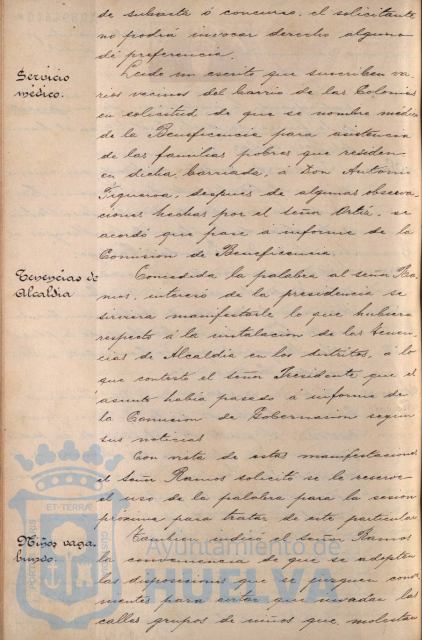 de subasta ó concurso, el solicitante
no podrá invocar derecho alguno
de preferencia.
Servicio médico.
Leido un escrito que suscriben va-
rios vecinos del barrio de las Colonias
en solicitud de que se nombre médico
de la Beneficencia para asistencia
de las familias pobres que residen
en dicha barriada, á Don Antonio
Figueroa, después de algunas observa-
ciones hechas por el señor Ortiz, se
acordó que pase á informe de la
Comision de Beneficencia.
Tenencias de Alcaldia
Concedida la palabra al señor Ra-
mos, interesó de la presidencia se
sirviera manifestarle lo que hubiera
respecto á la instalacion de las tenen-
cias de Alcaldia en los distritos, á lo
que contestó el señor Presidente que el
asunto habia pasado á informe de
la Comision de Gobernacion según
sus noticias
Con vista de estas manifestaciones
el señor Ramos solicitó se le reserve
el uso de la palabra para la sesion
próxima para tratar de este particular
Niños vaga-
bundo.
Tambien indicó el señor Ramos
la conveniencia de que se adopten
las disposiciones que se juzguen conve-
nientes para evitar que invadan las
calles grupos de niños que, molestan
ET·TERRÆ
Ayuntamiento de
HUELVA